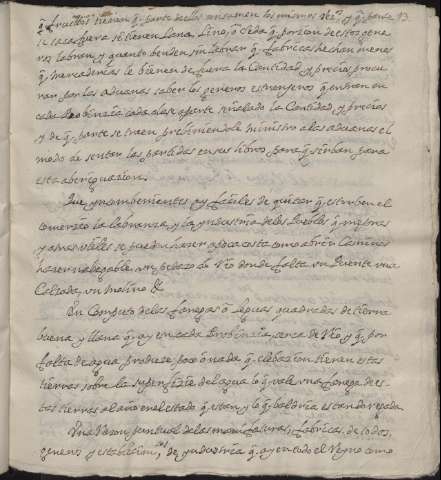 q.e fructos tienen q.e parte de ellos consumen los mismos Vez.s y q.e parte 13.
se saca fuera si tienen Lana, Lino, o Seda q.e porzion de estos gene
ros labran, y quanto benden sin labrar q.e fabricas hechan menos
q.e mercaderias le bienen de fuera la Cantidad, y precios procu
ran por las aduanas saber los generos estranjeros q.e entran en
cada Probinzia cada clase aparte señalado la Cantidad, y precios
y de q.e parte se traen prebiniendo el ministro a las aduanas el
modo de sentar las partidas en sus libros para q.e sirban para
esta aberiguazion.
Que ynconbenientes ay faciles de quitar q.e estorben el
comerzio la labranza, y la yndustria de los Pueblos q.e mejoras
y obras utiles se pueden hazer a poca costa como abrir Caminos
hazer nabegable un pedazo de Rio donde falta un Puente una
Calzada, un Molino &
En Computo de las fanegas o leguas quadradas de tierra
buena y llana q.e ay en cada Probinzia, cerca de Rio y q.e por
falta de agua produze poco o nada q.e elebazion tienen estas
tierras sobre la superfizie del agua lo q.e vale una fanega de es
tas tierras al año en el estado q.e estan y lo q.e baldria estando regada
Una Razon puntual de las manifaturas, fabricas, de todos
generos y establecim.tos de yndustria q.e ay en todo el Reyno como